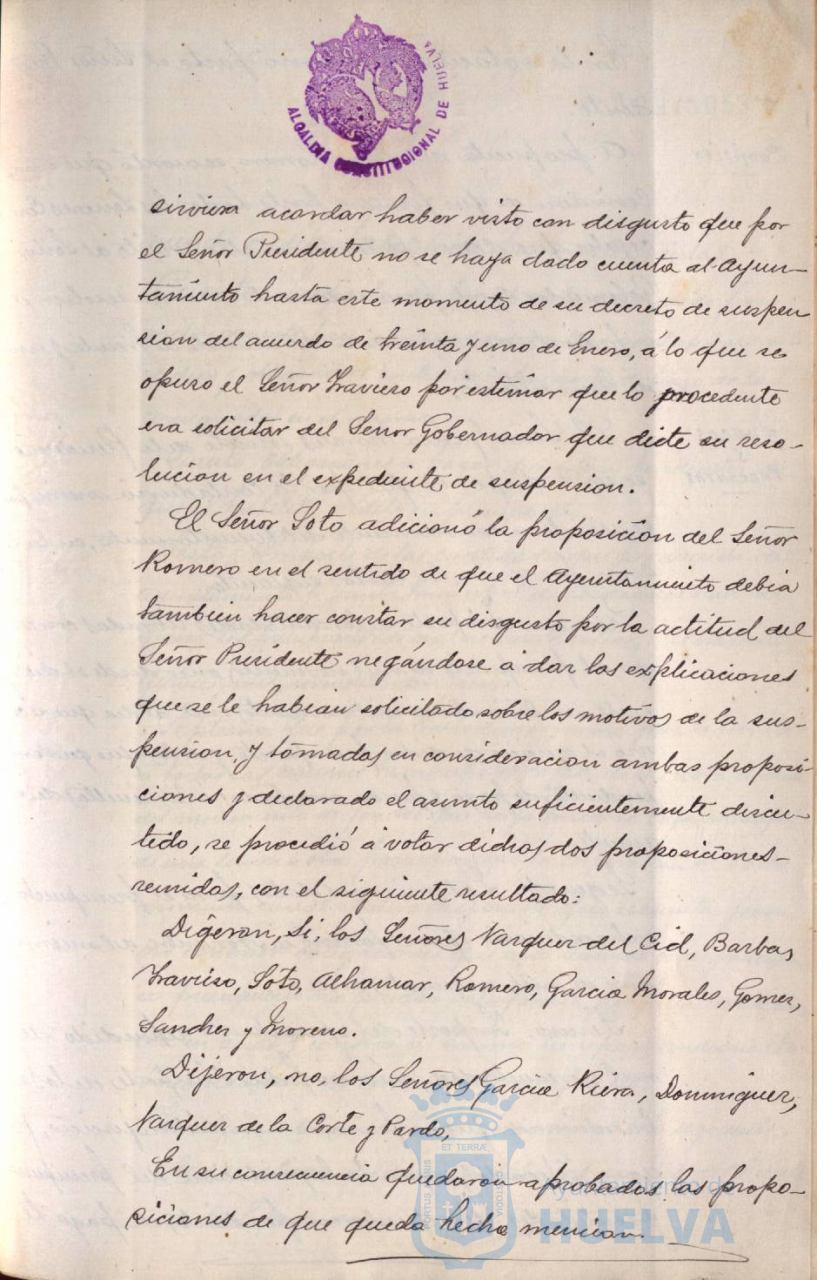 ALCALDIA CONSTITUCIONAL DE HUELVA
sirviera acordar haber visto con disgusto que por
el Señor Presidente no se haya dado cuenta al Ayun-
tamiento hasta este momento de su decreto de suspen
sion del acuerdo de treinta y uno de Enero, á lo que se
opuso el Señor Travieso por estimar que lo procedente
era solicitar del Señor Gobernador que dicte su reso-
lucion en el expediente de suspension.
El Señor Soto adicionó la proposición del Señor
Romero en el sentido de que el Ayuntamiento debia
tambien hacer constar su disgusto por la actitud del
Señor Presidente negándose á dar las explicaciones
que se le habian solicitado sobre los motivos de la sus-
pension, y tomadas en consideracion ambas proposi
ciones y declarado el asunto suficientemente discu-
tido, se procedió á votar dichas dos proposiciones-
reunidas, con el siguiente resultado:
Digeron, Si, los Señores Vazquez del Cid, Barba,
Travieso, Soto, Alhamar, Romero, Garcia Morales, Gomez,
Sanchez y Moreno.
Dijeron, no, los Señores Garcia Riera, Dominguez,
Vazquez de la Corte y Pardo,
En su consecuencia quedaron aprobadas las propo-
siciones de que queda hecha mencion.
PORTUS MARIS ET TERRÆ CUSTODIA
Ayuntamiento de
HUELVA